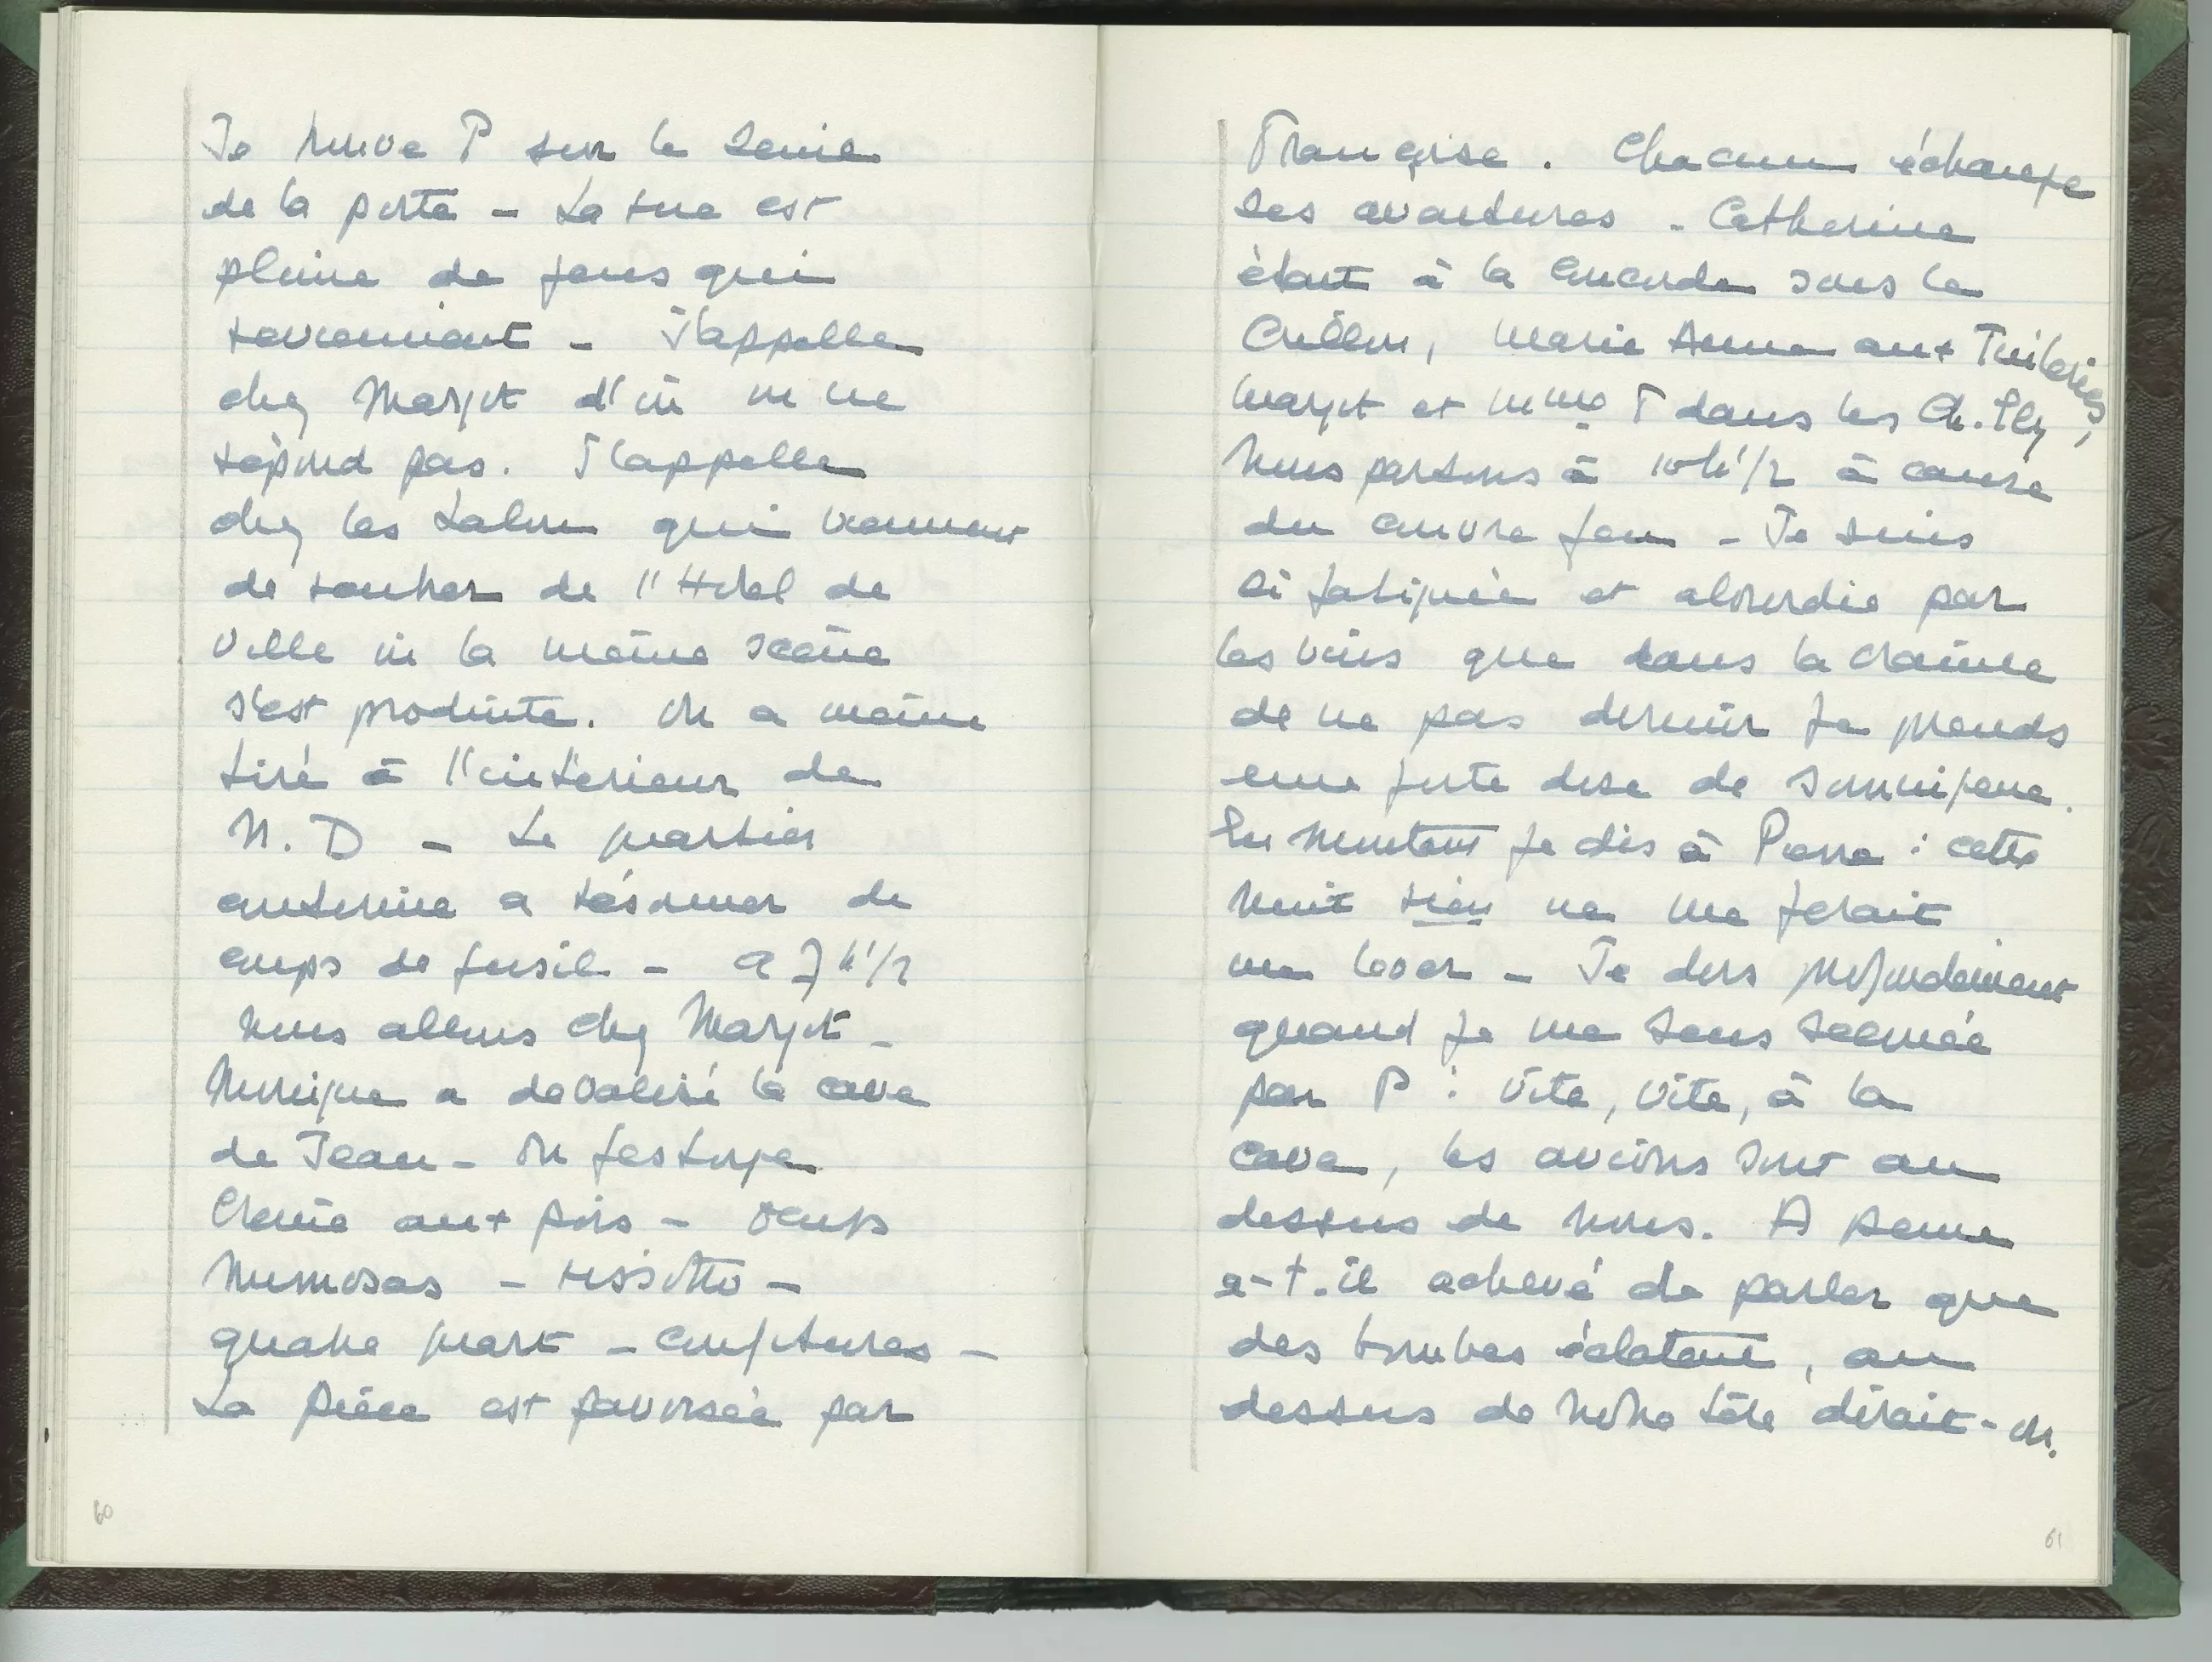 Je trouve P sur le seuil
de la porte - La rue est
pleine de gens qui
reviennent - J'appelle
chez Margot d'où on ne
répond pas. J'appelle
chez les qui viennent
de rentrer de l'Hotel de
Ville où la même scène
s'est produite. On a même
tiré à l'intérieur de
N. D - Le quartier
a résonner de
coups de fusil - a 7 h 1/2
nous allons chez Margot -
Monique a dévalisé la cave
de Jean - On festoye
Crème aux pois - oeufs
mimosas - rissotto -
quatre quart - confitures -
La pièce est traversée par
Françoise. Chacun échange
ses aventures - Catherine
était à la Concorde sous le
Crillon, Marie Anne aux Tuileries,
Margot et Mme T dans les Ch. Ely
Nous partons à 10h 1/2 à cause
du couvre feu - Je suis
si fatiguée et alourdie par
les vins que dans la crainte
de ne pas dormir je prends
une forte dose de somnifère.
En montant je dis à Pierre : cette
nuit rien ne me ferait
me lever - Je dors profondément
quand je me sens secouée
par P : Vite, vite, à la
cave, les avions sont au
dessus de nous. A peine
a-t-il achevé de parler que
des bombes éclatent, au
dessus de notre tête dirait-on.
60
61